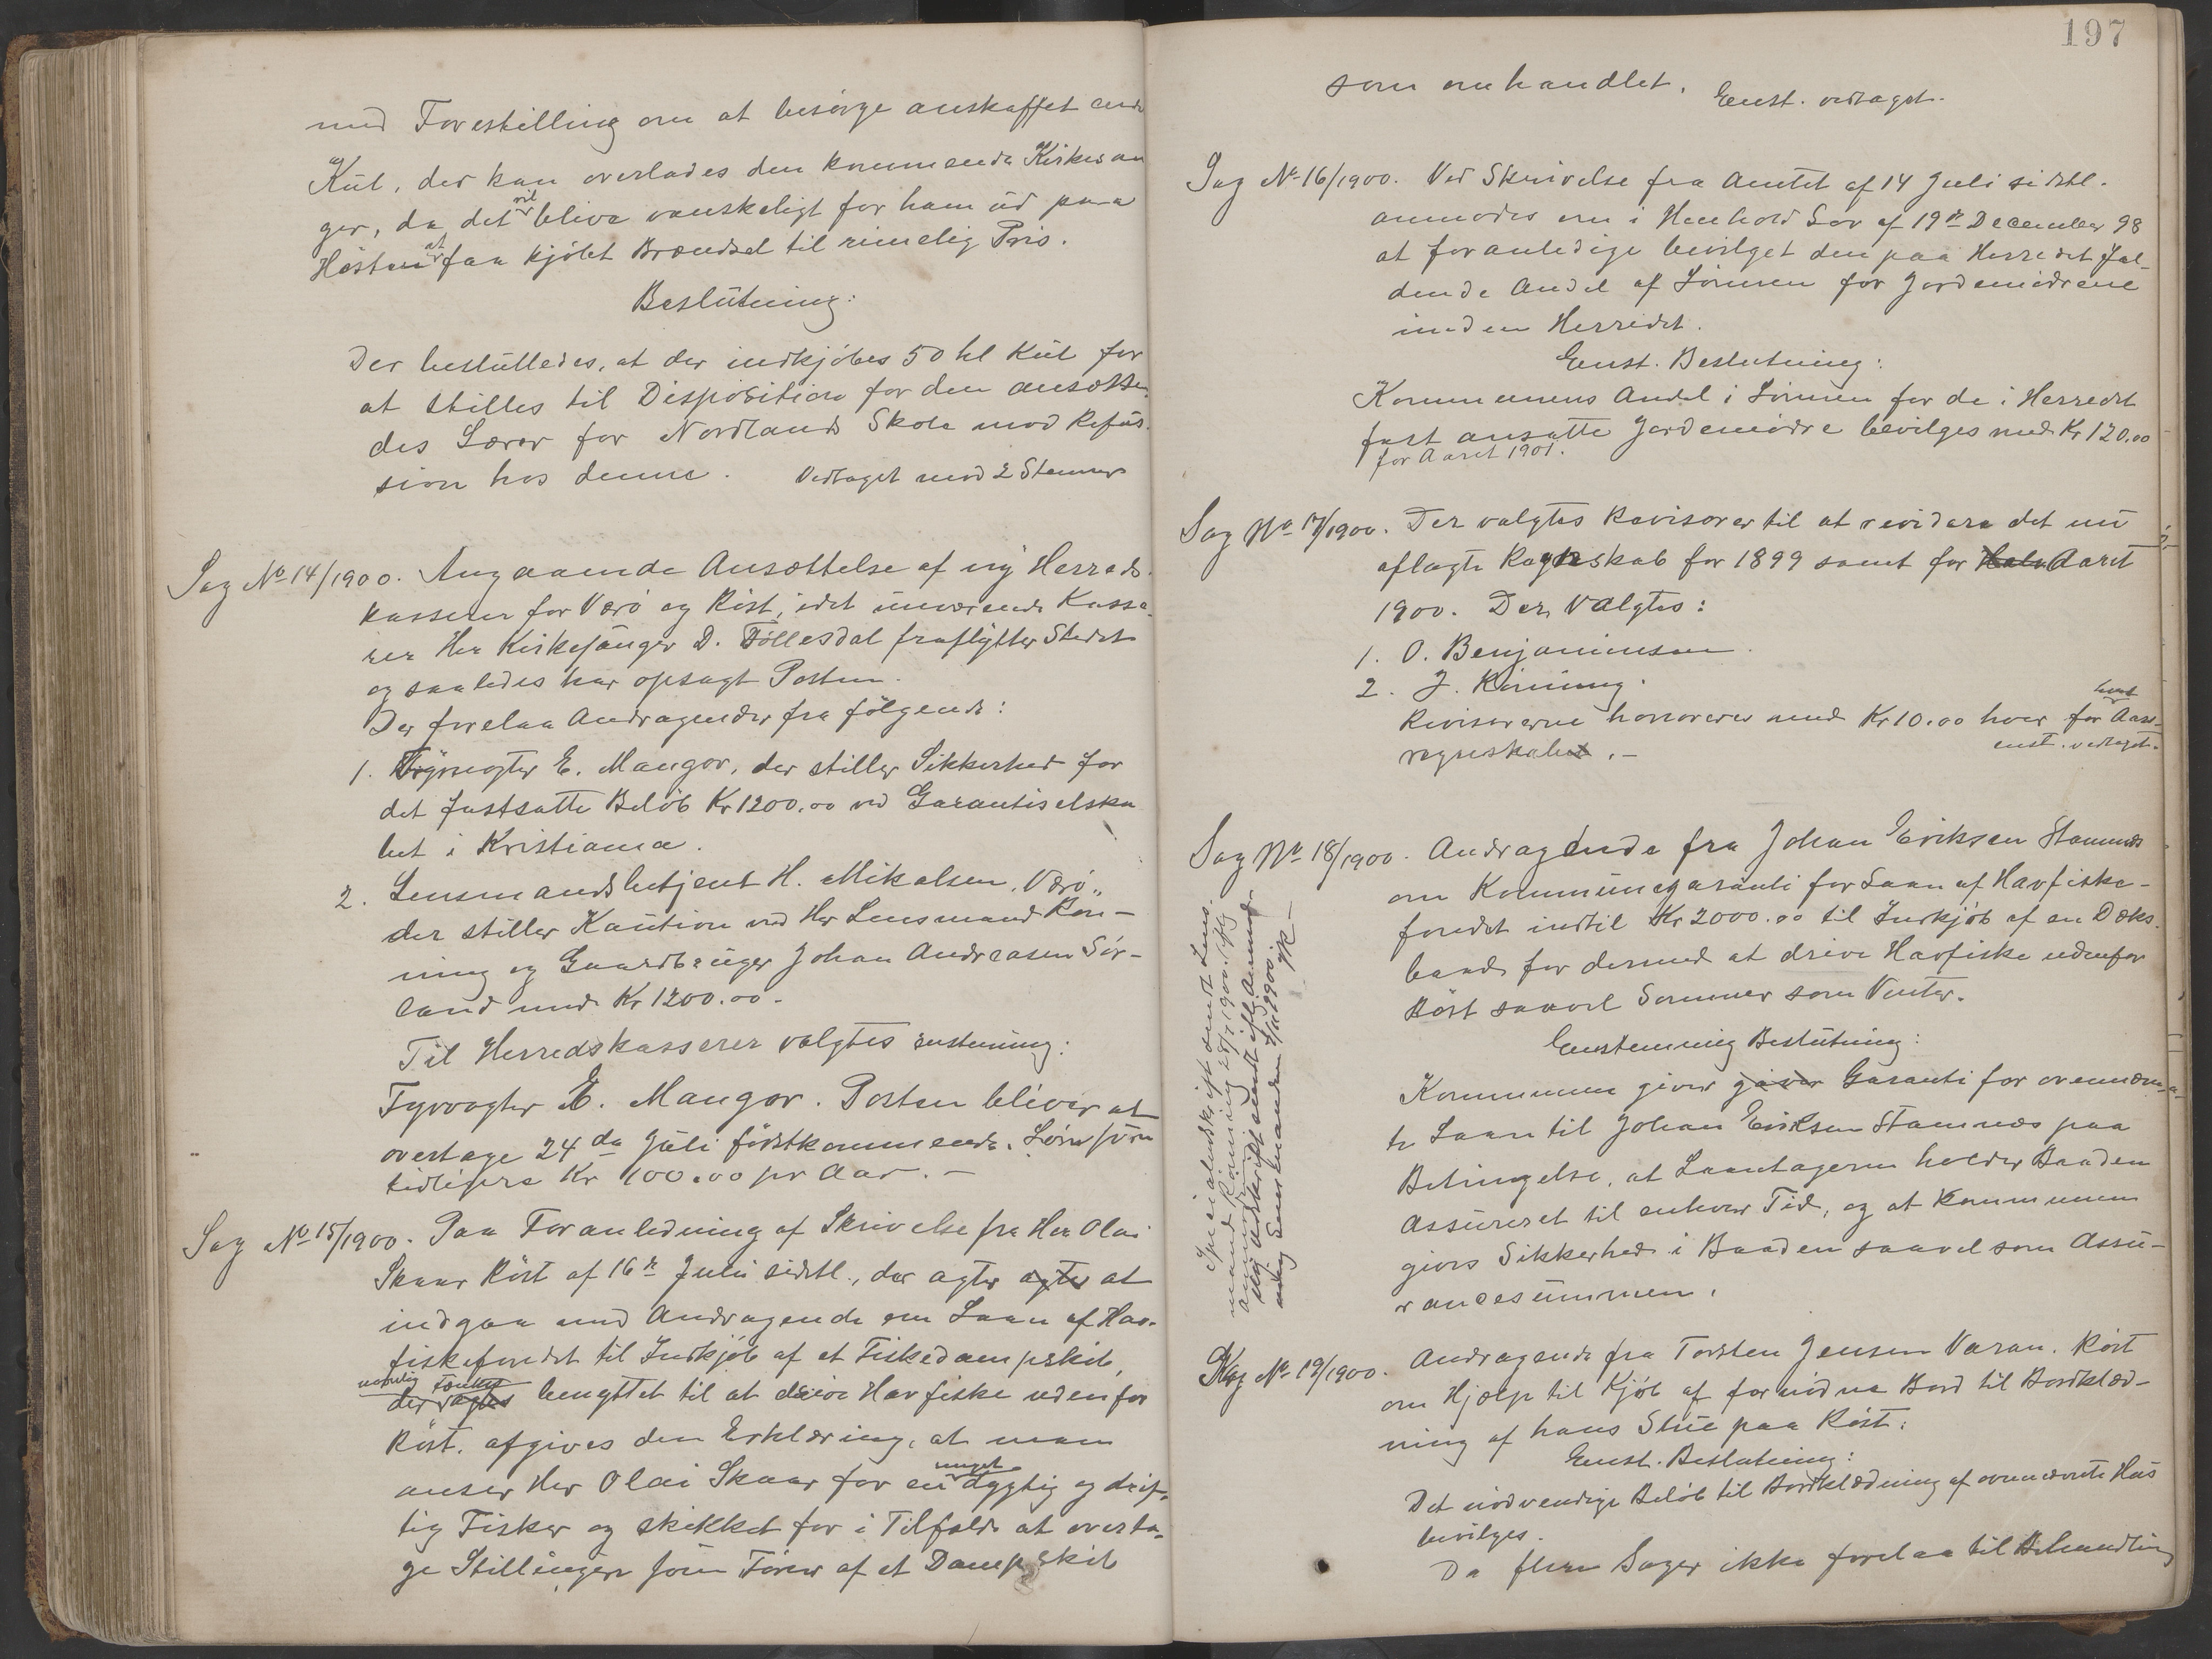 med Forestilling om at besörge anskaffet endel
Kul, der kan overlades den kommende Kirkesan
ger, da det vil blive vanskeligt for ham ud paa
Hösten at faa kjöbt Brændsel til rimelig Pris.
Beslutning:
Der besluttedes, at der indkjöbes 50 hl Kul for
at stilles til Disposition for den ansætten
des Lærer for Nordlands Skole mod Refu-
sion hos denne. Vedtaget mod 2 Stemmer
Sag No 14/1900. Angaaende Ansættelse af ny Herreds-
kasserer for Værö og Röst, idet nuværende Kasse-
rer Her Kirkesanger D. Föllesdal fraflytter Stedet
og saaledes har opsagt Posten.
Der forelaa Andragender fra fölgende:
1. Fyrvogter E. Mangor, der stiller Sikkerhed for
det fastsatte Belöb Kr 1200.00 ved Garantiselska
bet i Kristiania.
2. Lensmandsbetjent H. Mikalsen, Værö,
der stiller Kaution ved Her Lensmand Rön-
ning og Gaardbruger Johan Andreasen Sör-
land med Kr 1200.00.
Til Herredskasserer valgtes enstemig:
Fyrvogter E. Mangor. Posten bliver at
overtage 24de Juli förstkommende. Lön som
tidligere Kr 100.00 pr Aar. -
Sag No 15/1900. Paa Foranledning af Skrivelse fra Her Olai
Skaar Röst af 16de Juli sidstl., der agter agter at
indgaa med Andragende om Laan af Hav-
fiskefondet til Indkjöb af et Fiskedampskib,
der agtes benyttet til at drive Havfiske udenfor
Röst, afgives den Erklæring, at man
anser Her Olai Skaar for en meget dygtig og drif-
tig Fisker og skikket for i Tilfælde at overta-
ge Stillingen som Förer af et Dampskib
197
som omhandlet. Enst. vedtaget.
Sag No 16/1900. Ved Skrivelse fra Amtet af 14 Juli sidstl.
anmodes om i Henhold Lov af 19de December 98
at foranledige bevilget den paa Herredet fal-
dende Andel af Lönnen for Jordemödrene
inden Herredet.
Enst. Beslutning:
Kommunens Andel i Lönnen for de i Herredet
fast ansatte Jordemödre bevilges med Kr 120.00
for Aaret 1901.
Sag No 17/1900. Der valgtes Revisorer til at revidere det nu
aflagte Regnskab for 1899 samt for Halv Aaret
1900. Der valgtes:
1. O. Benjaminsen.
2. J. Rönning.
Revisorerne honoreres med Kr 10.00 hver for hvert Aars-
regnskabet. - enst. vedtaget.
Sag No 18/1900. Andragende fra Johan Eriksen Stamnæs
om Kommunegaranti for Laan af Havfiske-
fondet indtil Kr 2000.00 til Indkjöb af en Dæks-
baad, for dermed at drive Havfiske udenfor
Röst saavel Sommer som Vinter.
Enstemmig Beslutning:
Kommunen giver giver Garanti for ovennævn-
te Laan til Johan Eriksen Stamnæs paa
Betingelse, at Laantageren holder Baaden
Assureret til enhver Tid, og at Kommunen
gives Sikkerhed i Baaden saavel som Assu-
rancesummen.
Specialudskrift sendt Lens-
mand Rönning
Sag No 19/1900. Andragende fra Torsten Jensen Varan, Röst
om Hjælp til Kjöb af fornödne Bord til Bordklæd-
ning af hans Stue paa Röst.
Enst. Beslutning:
Det nödvendige Belöb til Bordklædning af ovennævnte Hus
bevilges.
Da flere Sager ikke forelaa til Behandling